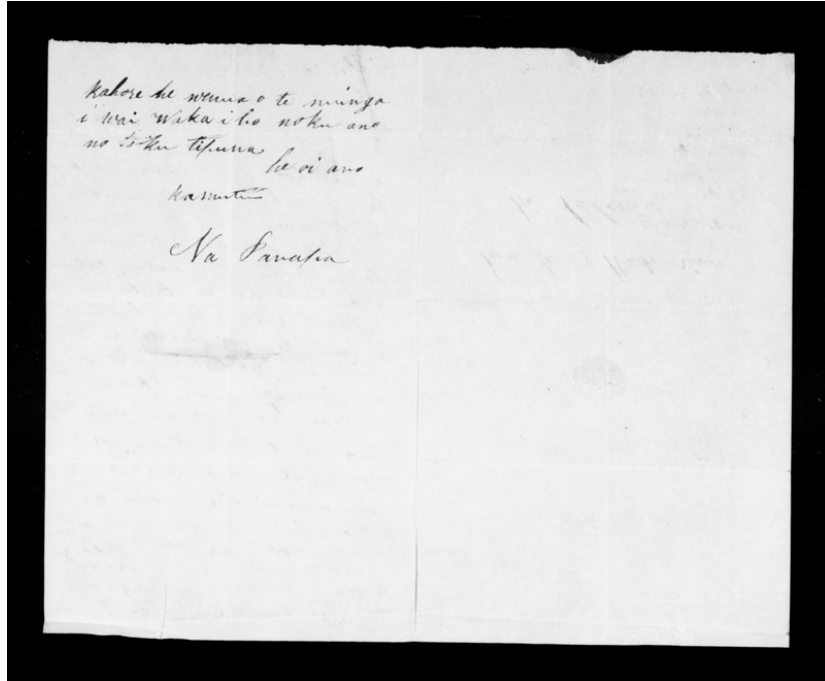 kahore he wenua o te
i wai waka i ho noku ano
no toku tipuna
he oi ano
kamutu
Na Panapa